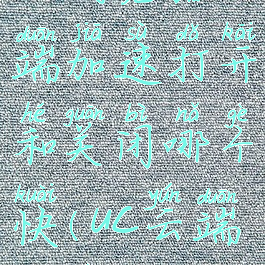 duān jiā sù dǎ kāi
端加速打开
hé guān bì nǎ gè
和关闭哪个
kuài yún duān
快(UC云端